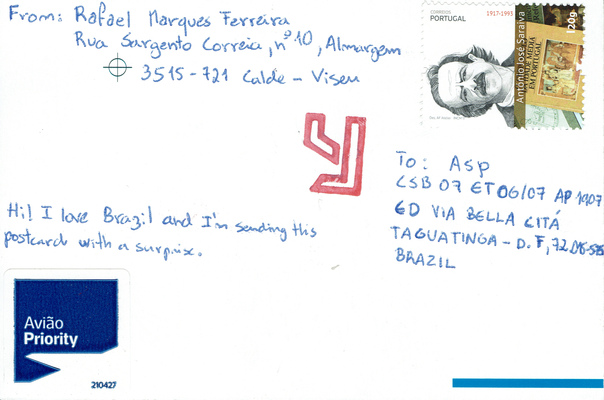 From: Rafael Marques Ferreira
Rua Sargento Correia, nº 10, Almargem
3515-721 Calde - Viseu
CORREIOS
PORTUGAL
1917-1993
António José Saraiva
EM PORTUGAL
20g
To: Asp
CSB 07 ET 06/07 AP 1907
ED VIA BELLA CITÁ
TAGUATINGA - D.F, 72
BRAZIL
Hi! I love Brazil and I'm sending this
postcard with a surprise.
Avião
Priority
210427